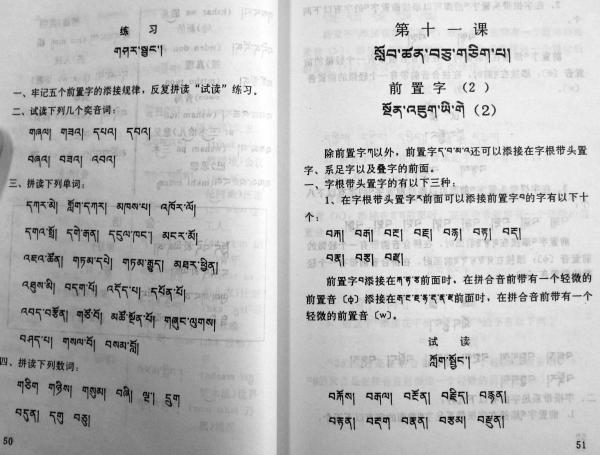 练 习
གཤར་སྦྱང་།
一、牢记五个前置字的添接规律，反复拼读“试读”练习。
二、试读下列几个奕音词：
གཞལ། གཟའ། དཔའ། དབའ།
བཞའ། བཟའ། འབའ།
三、拼读下列单词：
དཀར་མེ། ཀློག་དཀར། མཁས་པ། འཁོར་ལོ།
དགའ་སྤྲོ། དགེ་རྒན། དངུལ་ཁང་། མངར་མོ།
འཇའ་ཚོན། གཏམ་དཔེ། གཏམ་རྒྱུད། མཐར་ཕྱིན།
འཐུས་མི། བདག་པོ། འདོད་པ། དཔོན་པོ།
འབད་བརྩོན། གཙོ་བོ། མཚོ་སྔོན་པོ། གཞུང་ལུགས།
བཤད་པ། གསལ་པོ། བསམ་བློ།
四、拼读下列数词：
གཅིག གཉིས། གསུམ། བཞི། ལྔ། དྲུག
བདུན། དགུ བཅུ།
50
第十一课
སློབ་ཚན་བཅུ་གཅིག་པ།
前置字（2）
སྔོན་འཇུག་ཡི་གེ (2)
除前置字ག以外，前置字ད་བ་མ་འ还可以添接在字根带头置
字、系足字以及叠字的前面。
一、字根带头置字的有以下三种：
1、在字根带头置字ར前面可以添接前置字བ的字有以下十
个：
བརྐ། བརྒ། བརྔ། བརྗ། བརྙ། བརྟ། བརྡ།
བརྣ། བརྩ། བརྫ།
前置字བ添接在ཀ་ཏ་ཙ前面时，在拼合音前带有一个轻微的
前置音〔ɸ〕添接在ག་ང་ཇ་ཉ་ད་ན་ཛ前面时，在拼合音前带有一个
轻微的前置音〔w〕。
试 读
ཀློག་སྦྱོང་།
བརྐོས། བརྒལ། བརྔོན། བརྗིད། བརྙན།
བརྟན། བརྡག བརྣན། བརྩམ། བརྫུན།
51